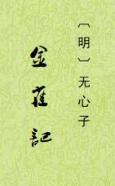 〔明〕无心子
金雀記